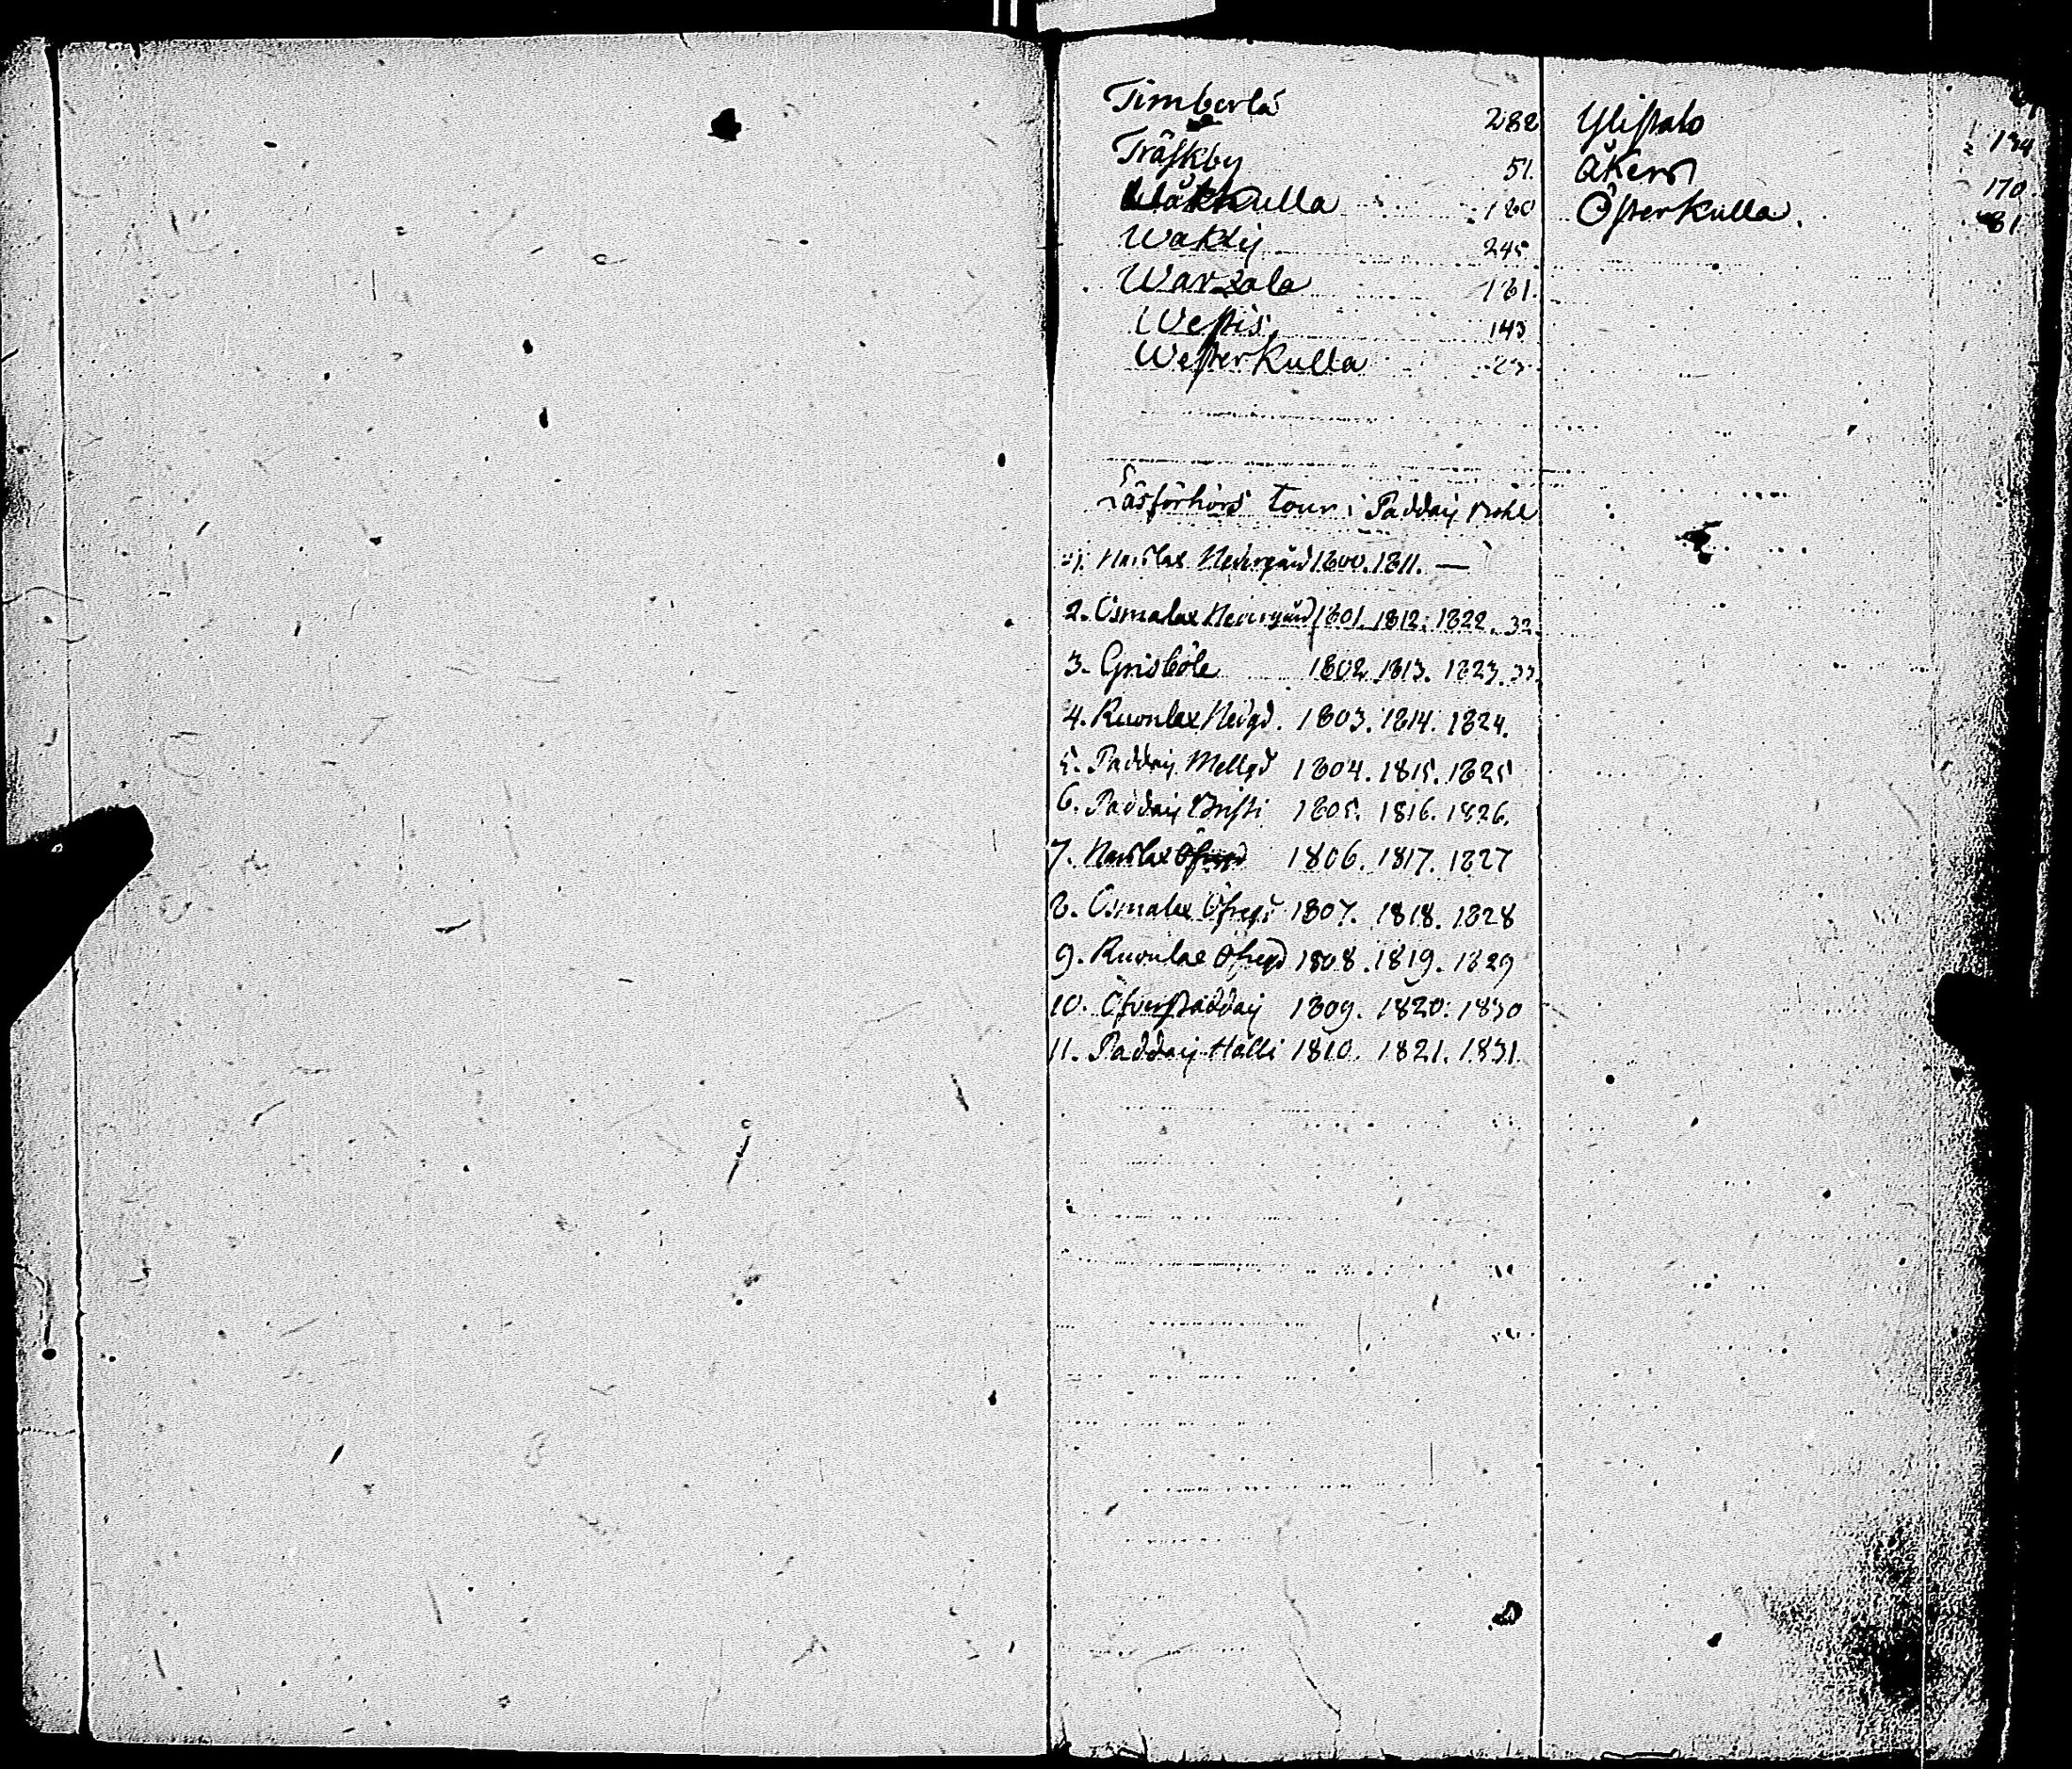 Timberlä 282
Träskby 51.
Wåhkulla 180
Wakdij 245
Warsala 181.
Westis, 143
Westerkulla 23
Ylistalo 194
Åkers 170
Österkulla. 81
Läsförhörs tour i Paddaij
1. Narslax Nedergård 1800. 1811. —
2. Osmalax Nedergård 1801. 1812. 1822. 32.
3. Grisböle 1802. 1813. 1823. 33.
4. Ruonlax Nedgd. 1803. 1814. 1824.
5. Paddaij Mellgd 1804. 1815. 1825
6. Paddaij 1805. 1816. 1826.
7. Narslax Öfregd 1806. 1817. 1827
8. Osmalax Öfregd 1807. 1818. 1828
9. Ruonlax Öfregd 1808. 1819. 1829
10. Öfverpaddaij 1809. 1820. 1830
11. Paddaij Hälli 1810. 1821. 1831.